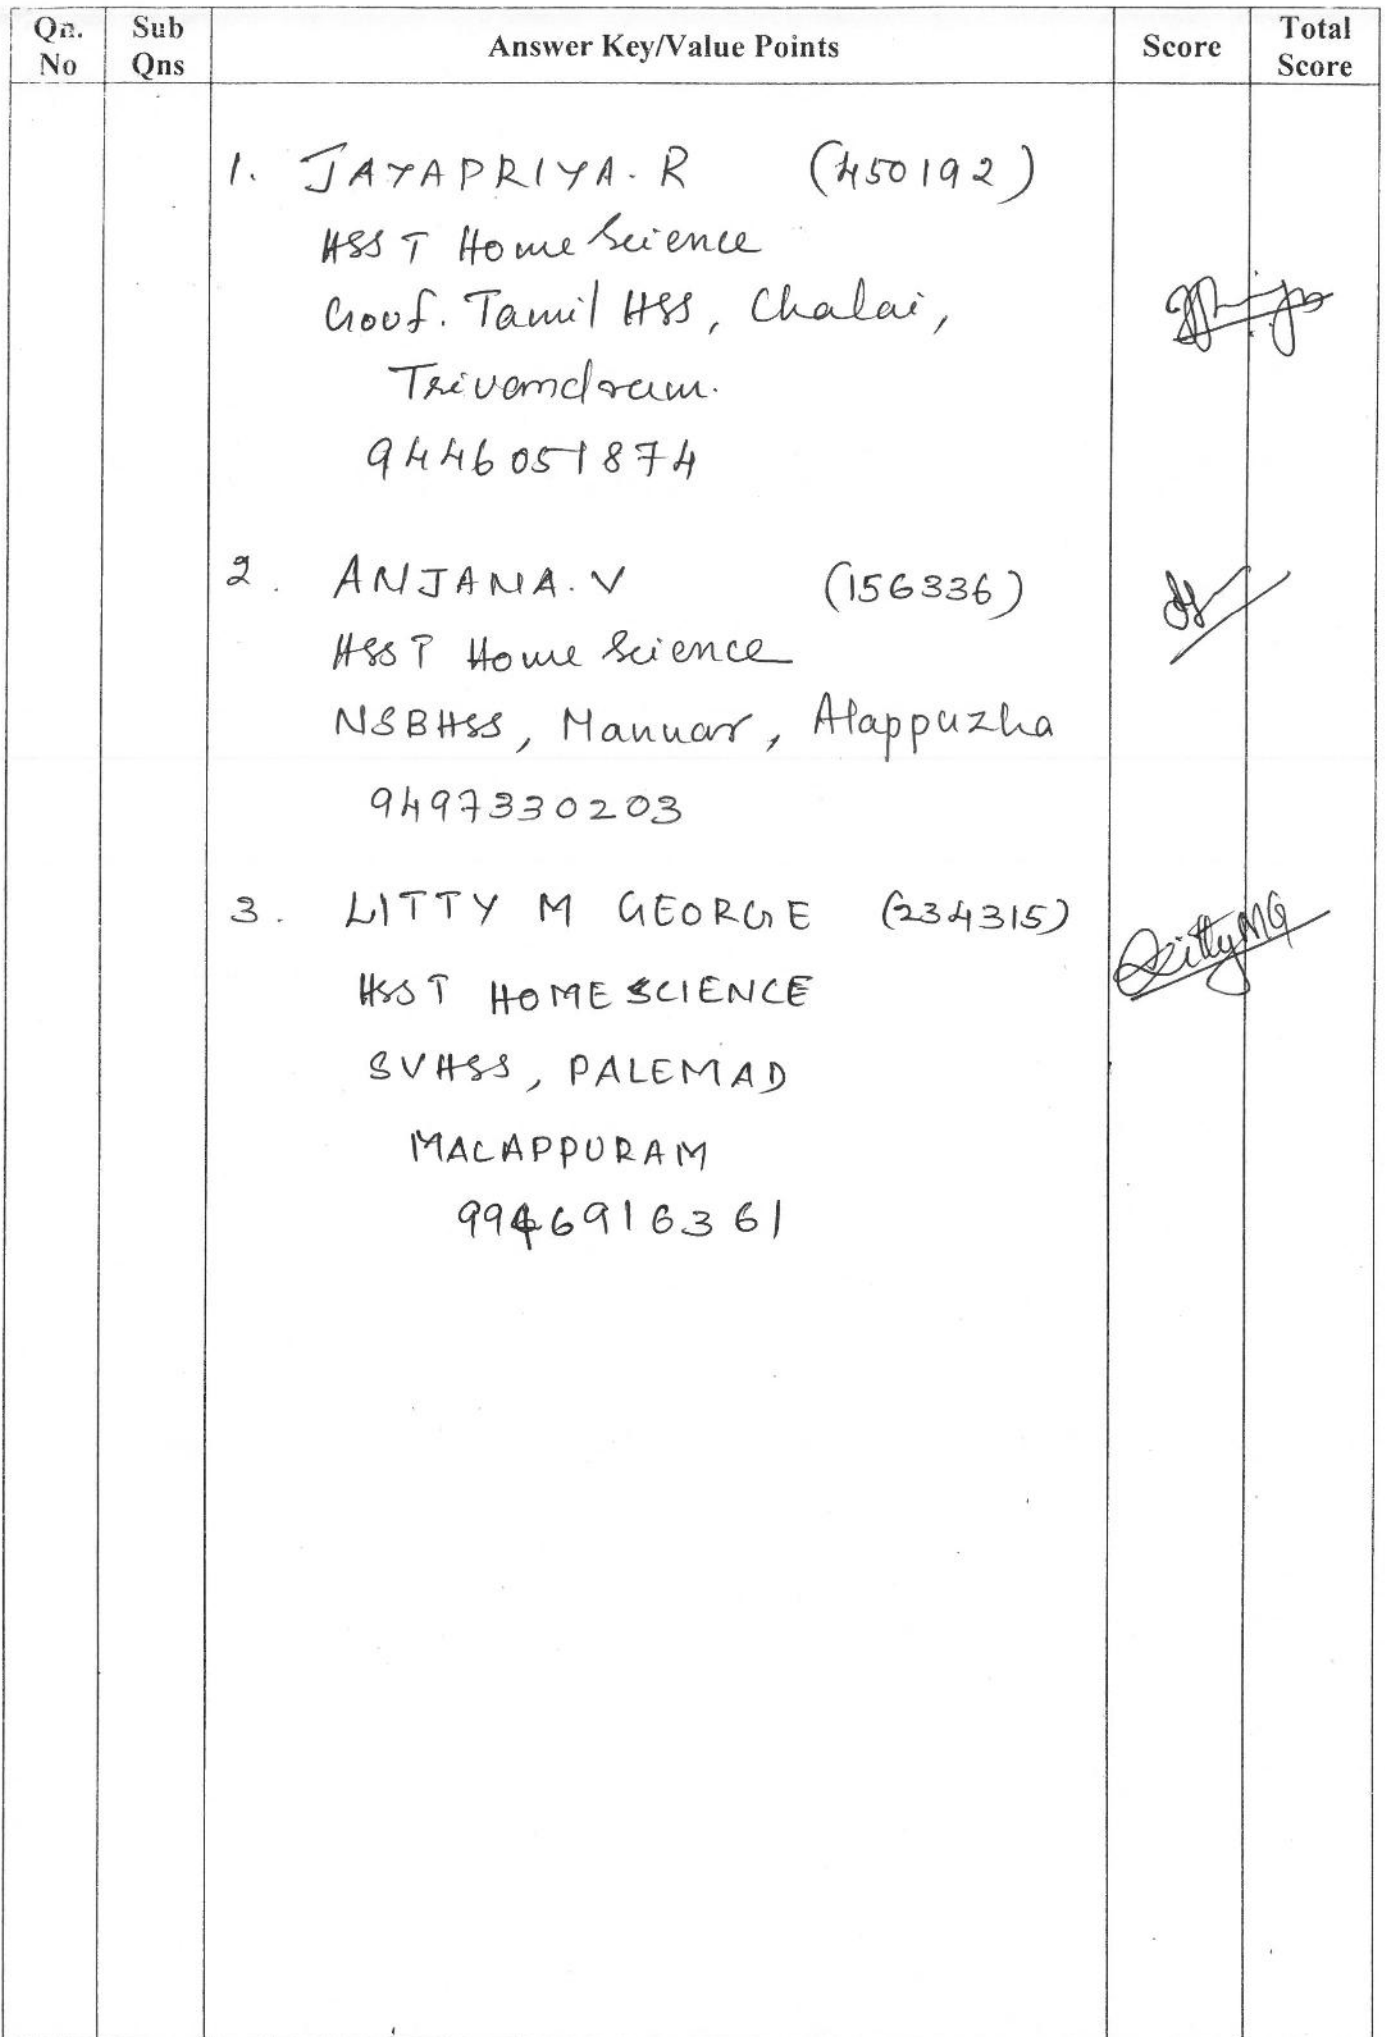 Qn. No Sub Qns Answer Key/Value Points Score Total Score
1. JAYAPRIYA. R (450192)
HSST Home Science
Govt. Tamil HSS, Chalai,
Trivandrum.
9446051874
2. ANJANA. V (156336)
HSST Home Science
NSBHSS, Mannar, Alappuzha
9497330203
3. LITTY M GEORGE (234315)
Litty MG
HSST HOME SCIENCE
SVHSS, PALEMAD
MALAPPURAM
9946916361